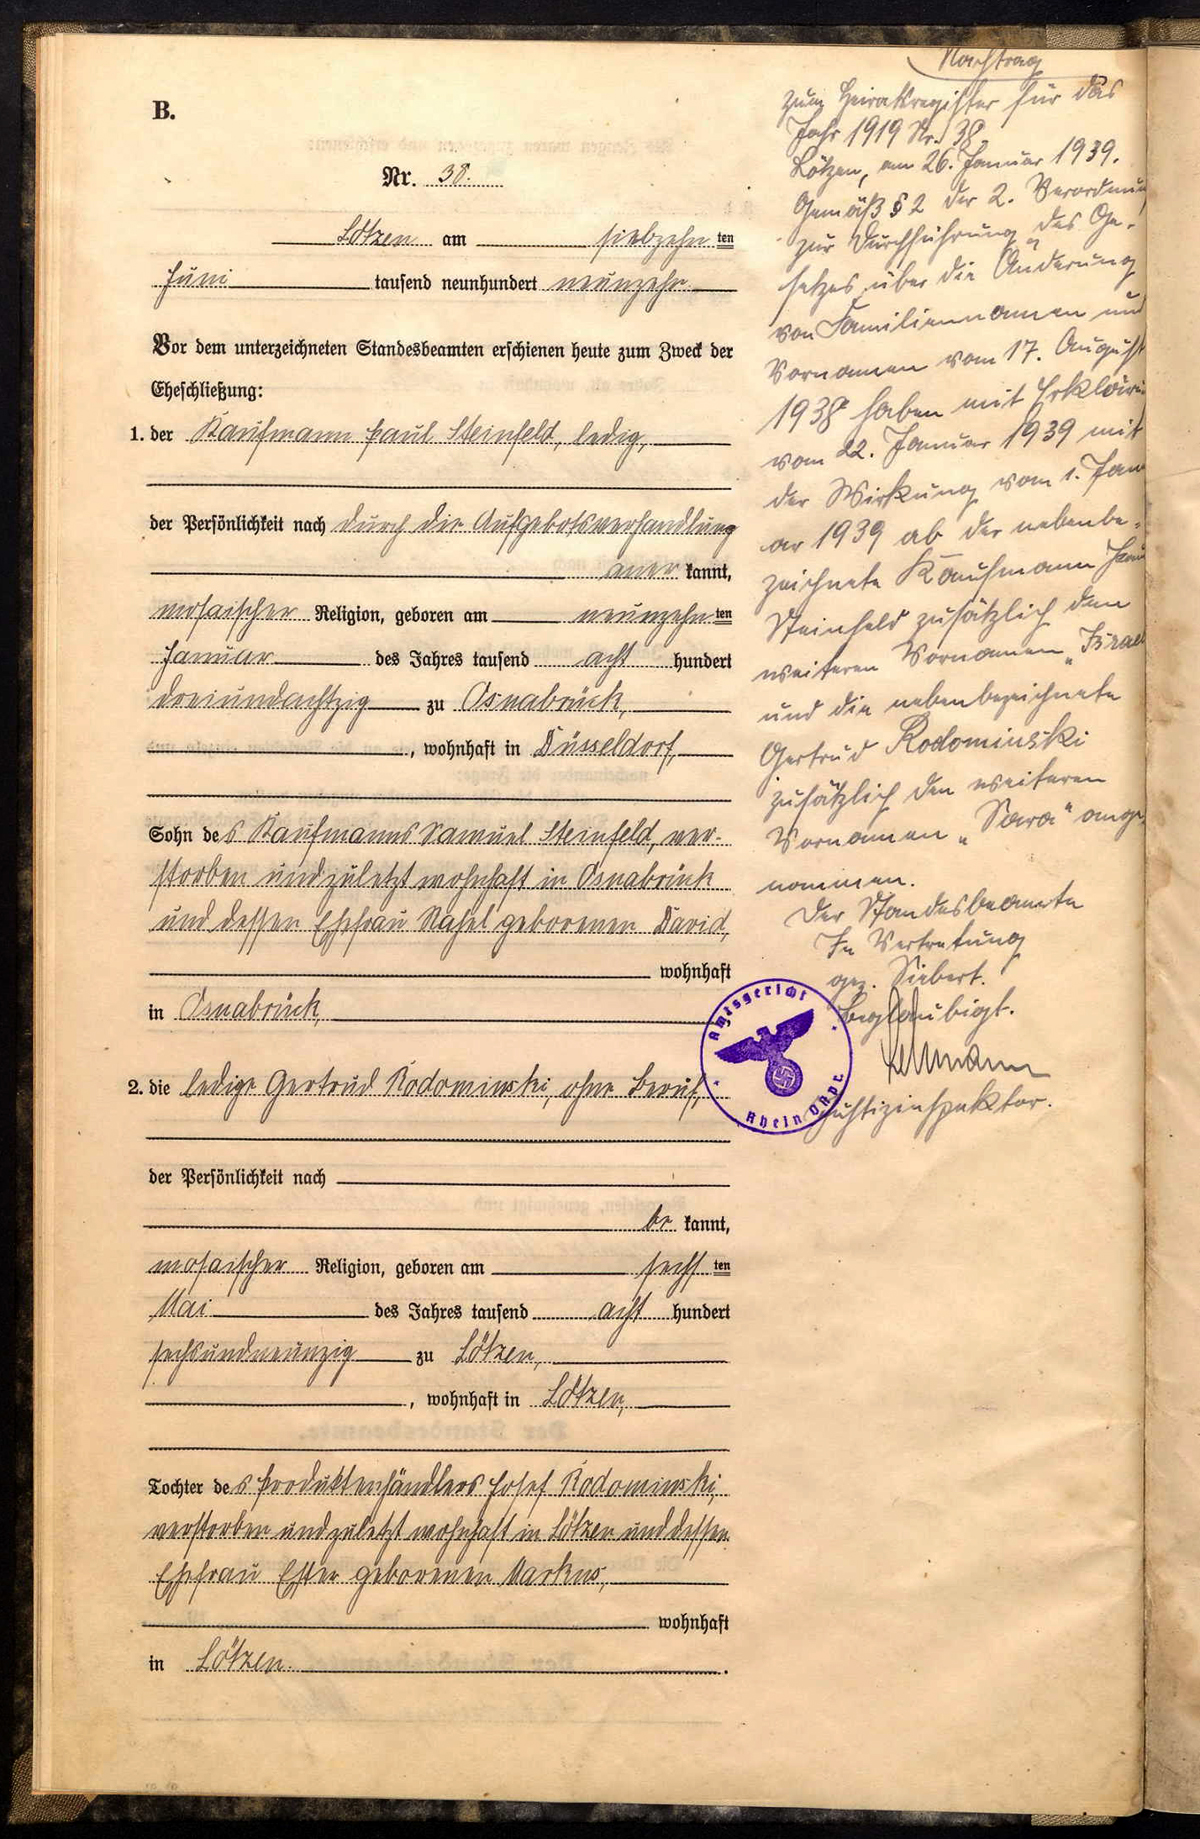 B.
Nr. 38.
Lötzen am siebzehnten
Juni tausend neunhundert neunzehn
Vor dem unterzeichneten Standesbeamten erschienen heute zum Zweck der
Eheschließung:
1. der Kaufmann Paul Steinfeld, ledig,
der Persönlichkeit nach durch die Aufgebotsverhandlung
anerkannt,
mosaischer Religion, geboren am neunzehnten
Januar des Jahres tausend acht hundert
dreiundachtzig zu Osnabrück,
, wohnhaft in Düsseldorf,
Sohn des Kaufmanns Samuel Steinfeld, ver-
storben und zuletzt wohnhaft in Osnabrück
und dessen Ehefrau Rahel geborenen David,
wohnhaft
in Osnabrück,
2. die ledige Gertrud Rodominski, ohne Beruf,
der Persönlichkeit nach
bekannt,
mosaischer Religion, geboren am sechsten
Mai des Jahres tausend acht hundert
sechsundneunzig zu Lötzen,
, wohnhaft in Lötzen,
Tochter des Produktenhändlers Josef Rodominski,
verstorben und zuletzt wohnhaft in Lötzen und dessen
Ehefrau Ester geborenen Markus,
wohnhaft
in Lötzen.
Nachtrag
zum Heiratsregister für das
Jahr 1919 Nr. 38.
Lötzen, am 26. Januar 1939.
Gemäß § 2 der 2. Verordnung
zur Durchführung des Ge-
setzes über die Änderung
von Familiennamen und
Vornamen vom 17. August
1938 haben mit Erklärung
vom 22. Januar 1939 mit
der Wirkung vom 1. Janu
ar 1939 ab der nebenbe-
zeichnete Kaufmann
Steinfeld zusätzlich den
weiteren Vornamen „Israel
und die nebenbezeichnete
Gertrud Rodominski
zusätzlich den weiteren
Vornamen „Sara" ange-
nommen.
Der Standesbeamte
In Vertretung
gez. Siebert.
Beglaubigt.
Lehmann
Justizinspektor.
Amtsgericht
Rhein Ostpr.